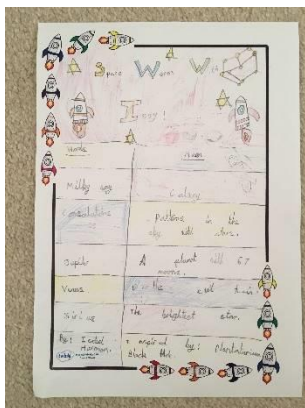 Space Words With
Izzy!
Words
Milky way Galaxy
Constellations Patterns in the
sky with stars.
Jupiter A planet with 67
moons.
Venus the evil twin
Sirius The brightest star.
By: Isabel
inspired by: Planetarium
Black Hole
twinkl